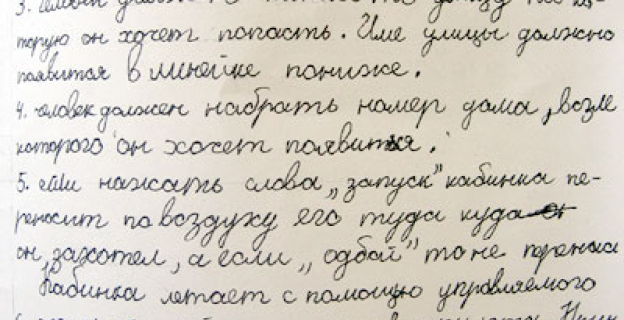 3. человек должен на улицу на ко-
торую он хочет попасть. Име улицы должно
появится в минейке пониже.
4. человек должен набрать номер дома, возле
которого он хочет появится.
5. если нажать слова „запуск" кабинка пе-
реносит по воздуху его туда куда он
он захотел, а если „одбай" то не
Кабинка летает с помощю управляемого